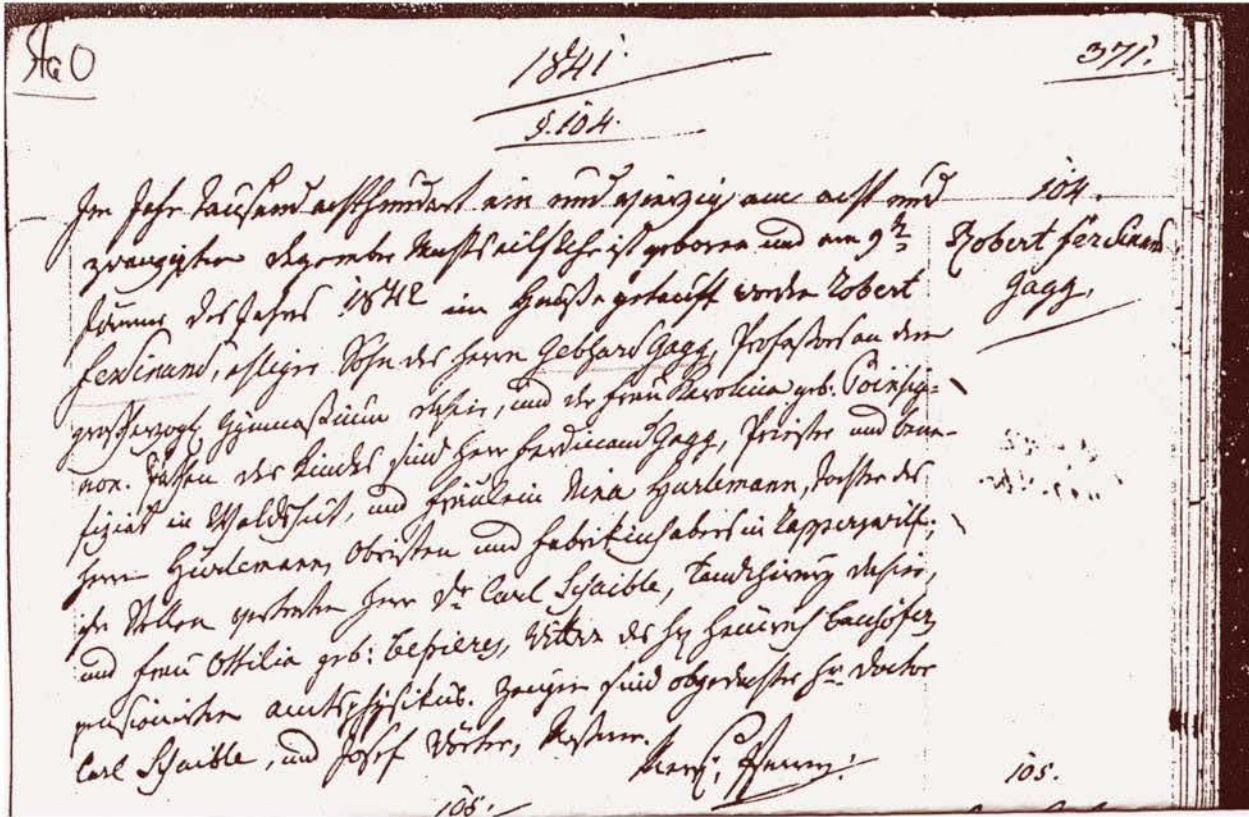 1841.
371.
§. 104.
Im Jahr Tausend achthundert ein und vierzig am acht und
104.
zwanzigsten Dezember Nachts eilf Uhr ist geboren und am 9ten
Robert Ferdinand
Jänner des Jahrs 1842 im Hause getauft worden Robert
Gagg.
Ferdinand, ehliger Sohn des Herrn Gebhard Gagg, Professors an dem
großherzogl. Gymnasium dahier, und der Frau Karolina geb: Poinsig-
non. Pathen des Kindes sind Herr Ferdinand Gagg, Priester und Bene-
fiziat in Waldshut, und Fräulein Nina Hürlemann, Tochter des
Herrn Hürlemann, Obristen und Fabrikinhabers in Rapperswill;
ihre Stellen vertreten Herr Dr Carl Schaible, dahier,
und Frau Ottilia geb: Wittwe des H. Heinrich
pensionirten Amtsphysikus. Zeugen sind obgedachter Hr. Doctor
Carl Schaible, und Josef Mesmer.
Pfarrer.
105.
105.